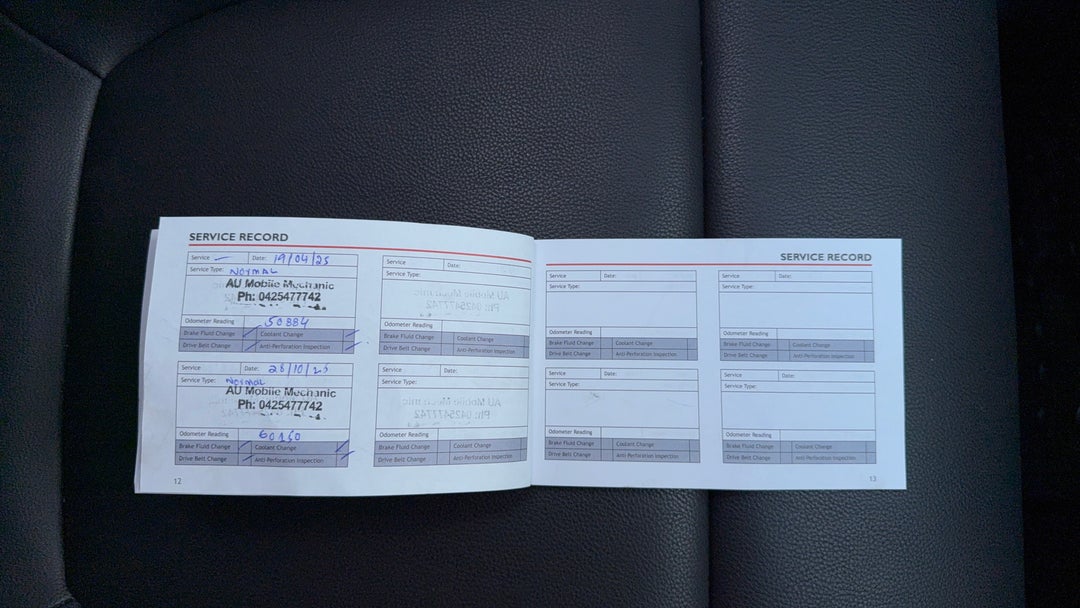 SERVICE RECORD
Service Date: 19/04/25
Service Type: Normal
AU Mobile Mechanic
Ph: 0425477742
Odometer Reading 50884
Brake Fluid Change Coolant Change
Drive Belt Change Anti-Perforation Inspection
Service Date: 28/10/25
Service Type: Normal
AU Mobile Mechanic
Ph: 0425477742
Odometer Reading 60160
Brake Fluid Change Coolant Change
Drive Belt Change Anti-Perforation Inspection
12
Service Date:
Service Type:
Odometer Reading
Brake Fluid Change Coolant Change
Drive Belt Change Anti-Perforation Inspection
Service Date:
Service Type:
Odometer Reading
Brake Fluid Change Coolant Change
Drive Belt Change Anti-Perforation Inspection
SERVICE RECORD
Service Date:
Service Type:
Odometer Reading
Brake Fluid Change Coolant Change
Drive Belt Change Anti-Perforation Inspection
Service Date:
Service Type:
Odometer Reading
Brake Fluid Change Coolant Change
Drive Belt Change Anti-Perforation Inspection
Service Date:
Service Type:
Odometer Reading
Brake Fluid Change Coolant Change
Drive Belt Change Anti-Perforation Inspection
Service Date:
Service Type:
Odometer Reading
Brake Fluid Change Coolant Change
Drive Belt Change Anti-Perforation Inspection
13